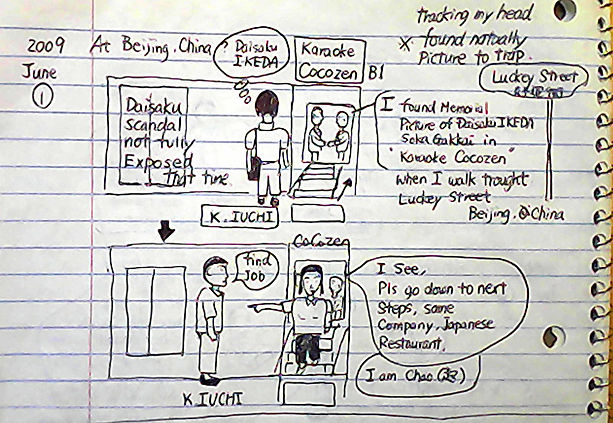 2009
June
①
At Beijing, China
? Daisaku
IKEDA
Karaoke
Cocozen
B1
tracking my head
※ found notually
Picture to trap.
Luckey Street
Daisaku
scandal
not fully
Exposed
that time
I found Memorial
Picture of Daisaku IKEDA
Soka Gakkai in
"Karaoke Cocozen"
when I walk trought
Luckey Street
Beijing, China
K. IUCHI
CoCozen
find
Job
I See,
Pls go down to next
Steps, same
Company, Japanese
Restaurant,
I am Chao
K. IUCHI